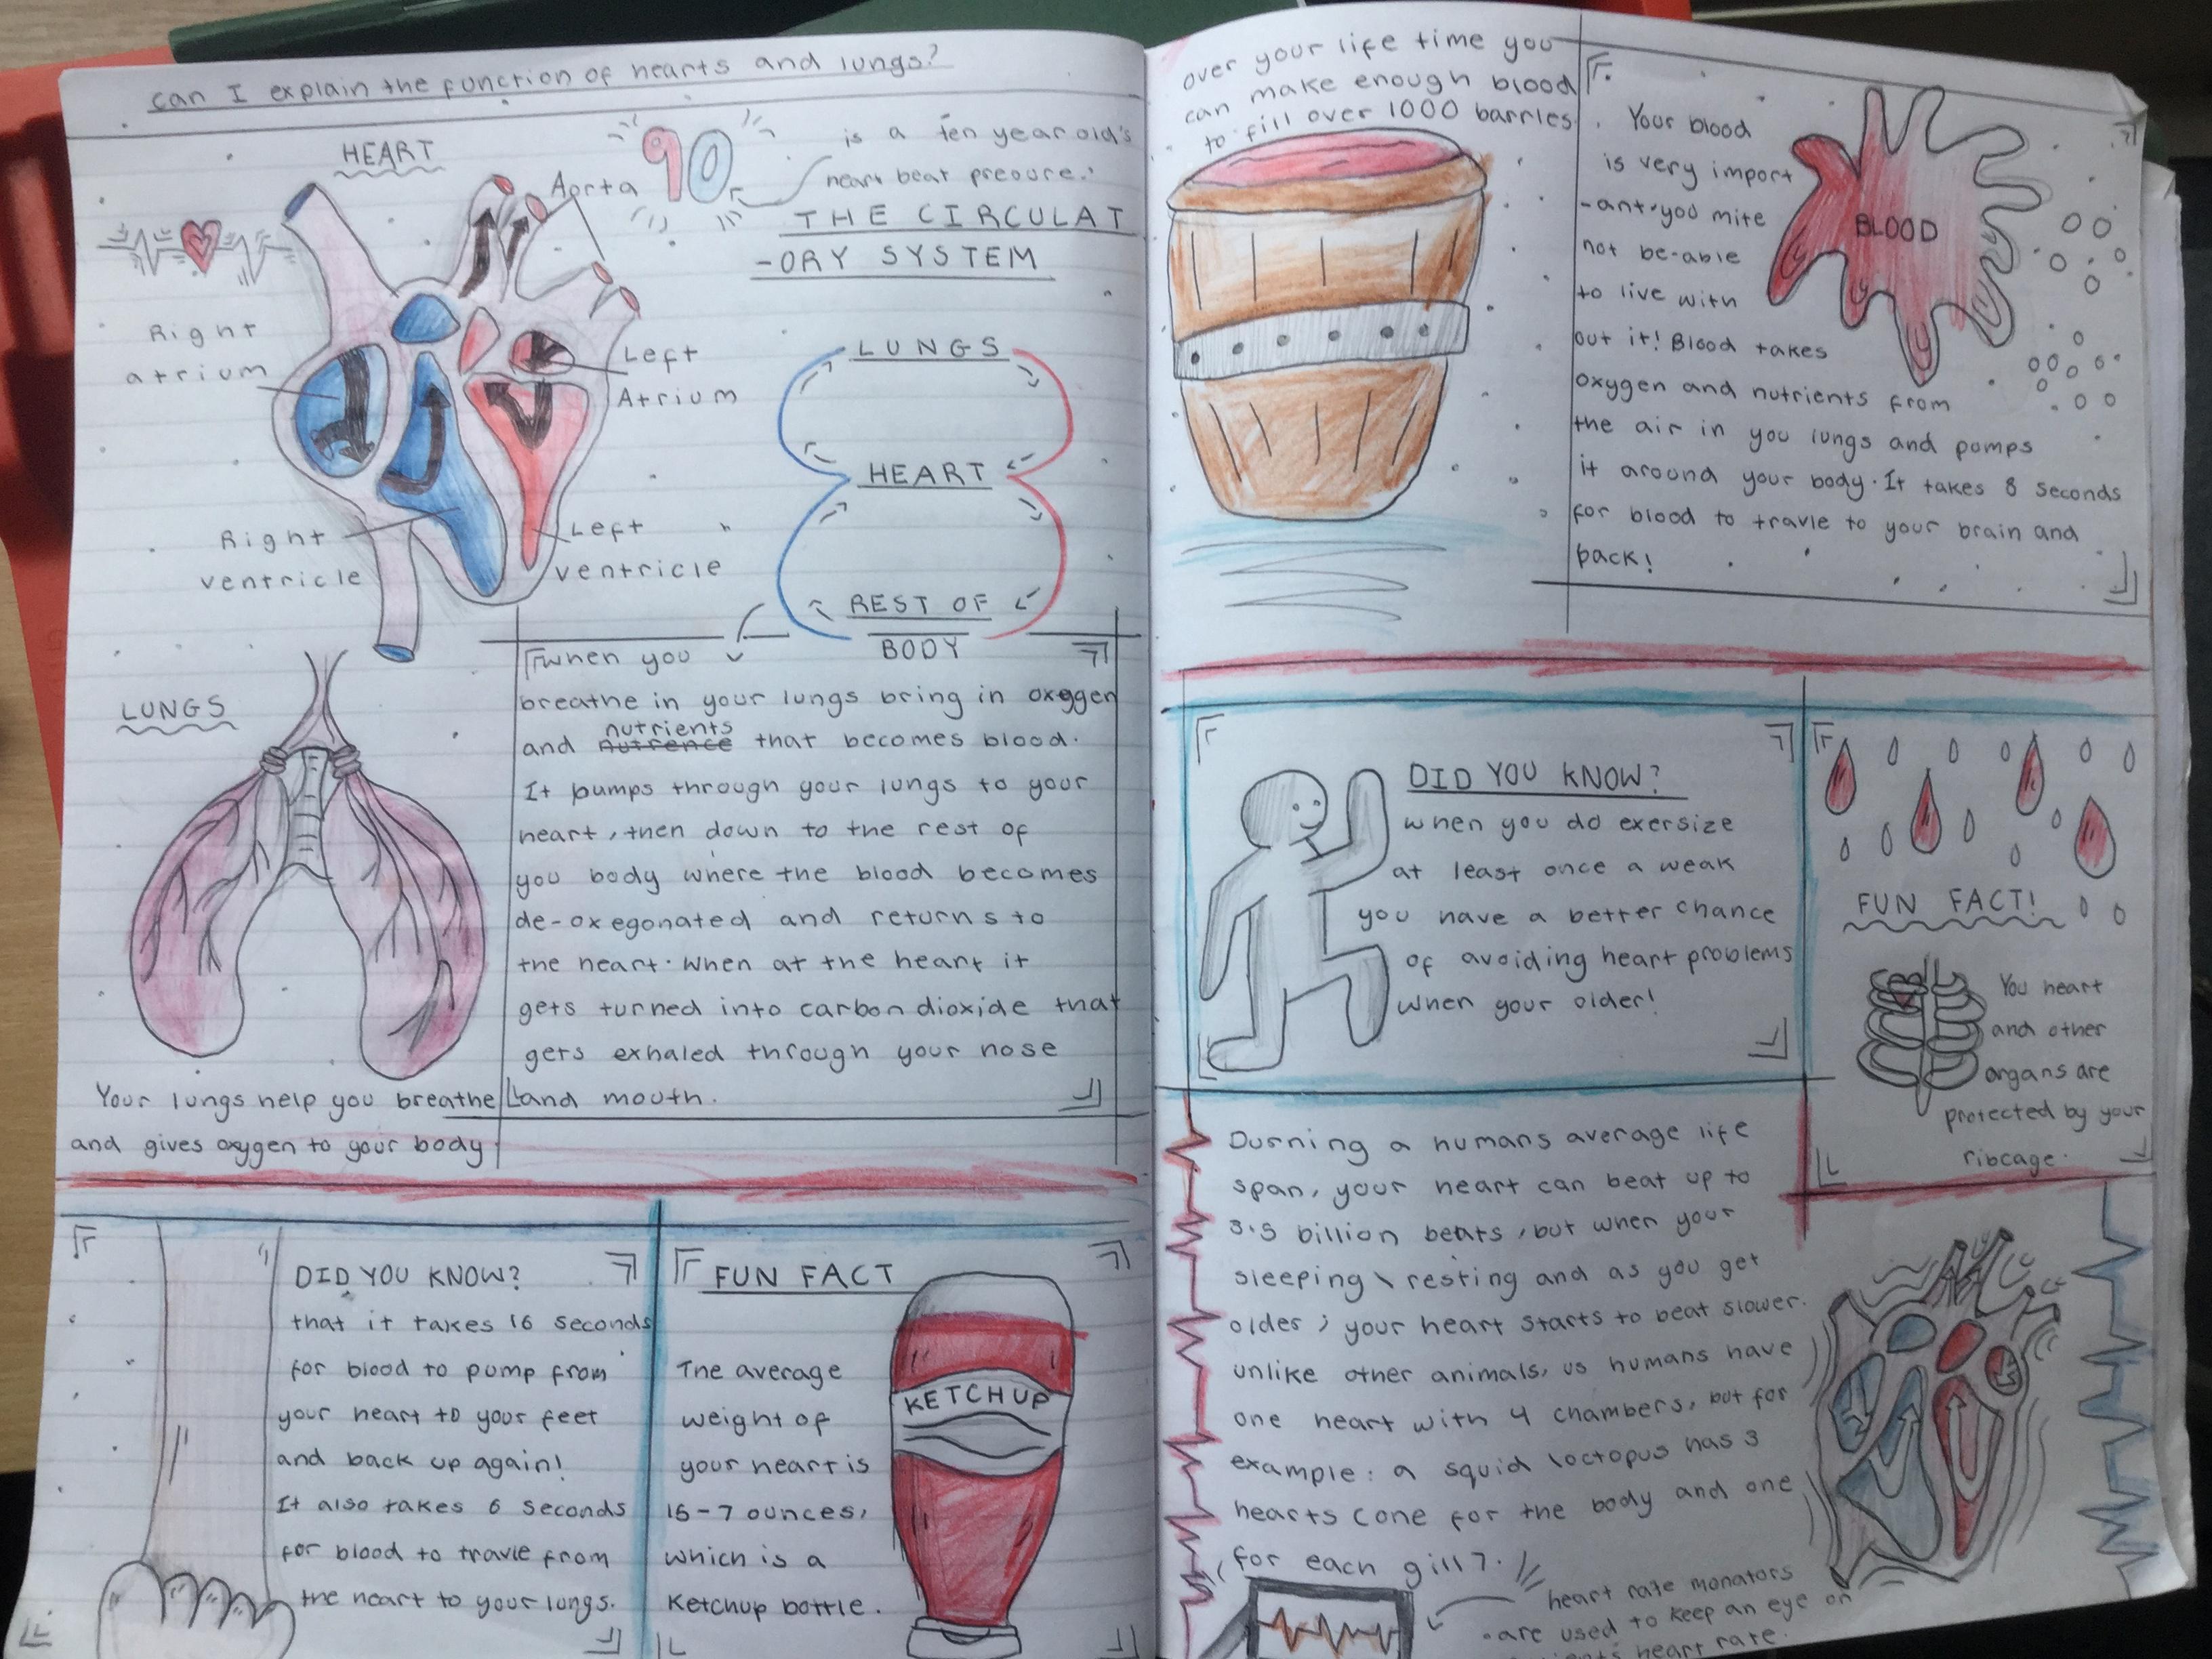 can I explain the function of hearts and lungs?
HEART
Aorta
90
is a ten year old's
heart beat
THE CIRCULAT
-ORY SYSTEM
Right
atrium
Left
Atrium
Right
ventricle
Left
ventricle
LUNGS
HEART
REST OF
BODY
LUNGS
Your lungs help you breathe
and gives oxygen to your body
when you
breathe in your lungs bring in oxggen
nutrients
and nutrence that becomes blood.
It pumps through your lungs to your
heart, then down to the rest of
you body where the blood becomes
de-oxegonated and returns to
the heart. When at the heart it
gets turned into carbon dioxide that
gets exhaled through your nose
and mouth.
DID YOU KNOW?
that it takes 16 seconds
for blood to pump from
your heart to your feet
and back up again!
It also takes 6 seconds
for blood to travle from
the heart to your longs.
FUN FACT
The average
weight of
your heart is
15-7 ounces,
which is a
Ketchup bottle.
KETCHUP
over your life time you
can make enough blood
to fill over 1000 barrles
Your blood
is very import
-ant you mite
not be-able
to live with
out it! Blood takes
oxygen and nutrients from
the air in you lungs and pomps
it around your body. It takes 8 seconds
for blood to travle to your brain and
back!
BLOOD
DID YOU KNOW?
when you do exersize
at least once a weak
you have a better chance
of avoiding heart problems
when your older!
FUN FACT!
You heart
and other
organs are
protected by your
ribcage.
Durning a humans average life
span, your heart can beat up to
3.5 billion beats, but when your
sleeping \ resting and as you get
older ; your heart starts to beat slower.
unlike other animals, us humans have
one heart with 4 chambers, but for
example: a squid \octopus has 3
hearts (one for the body and one
for each gill).
heart rate monators
are used to keep an eye on
heart rate.